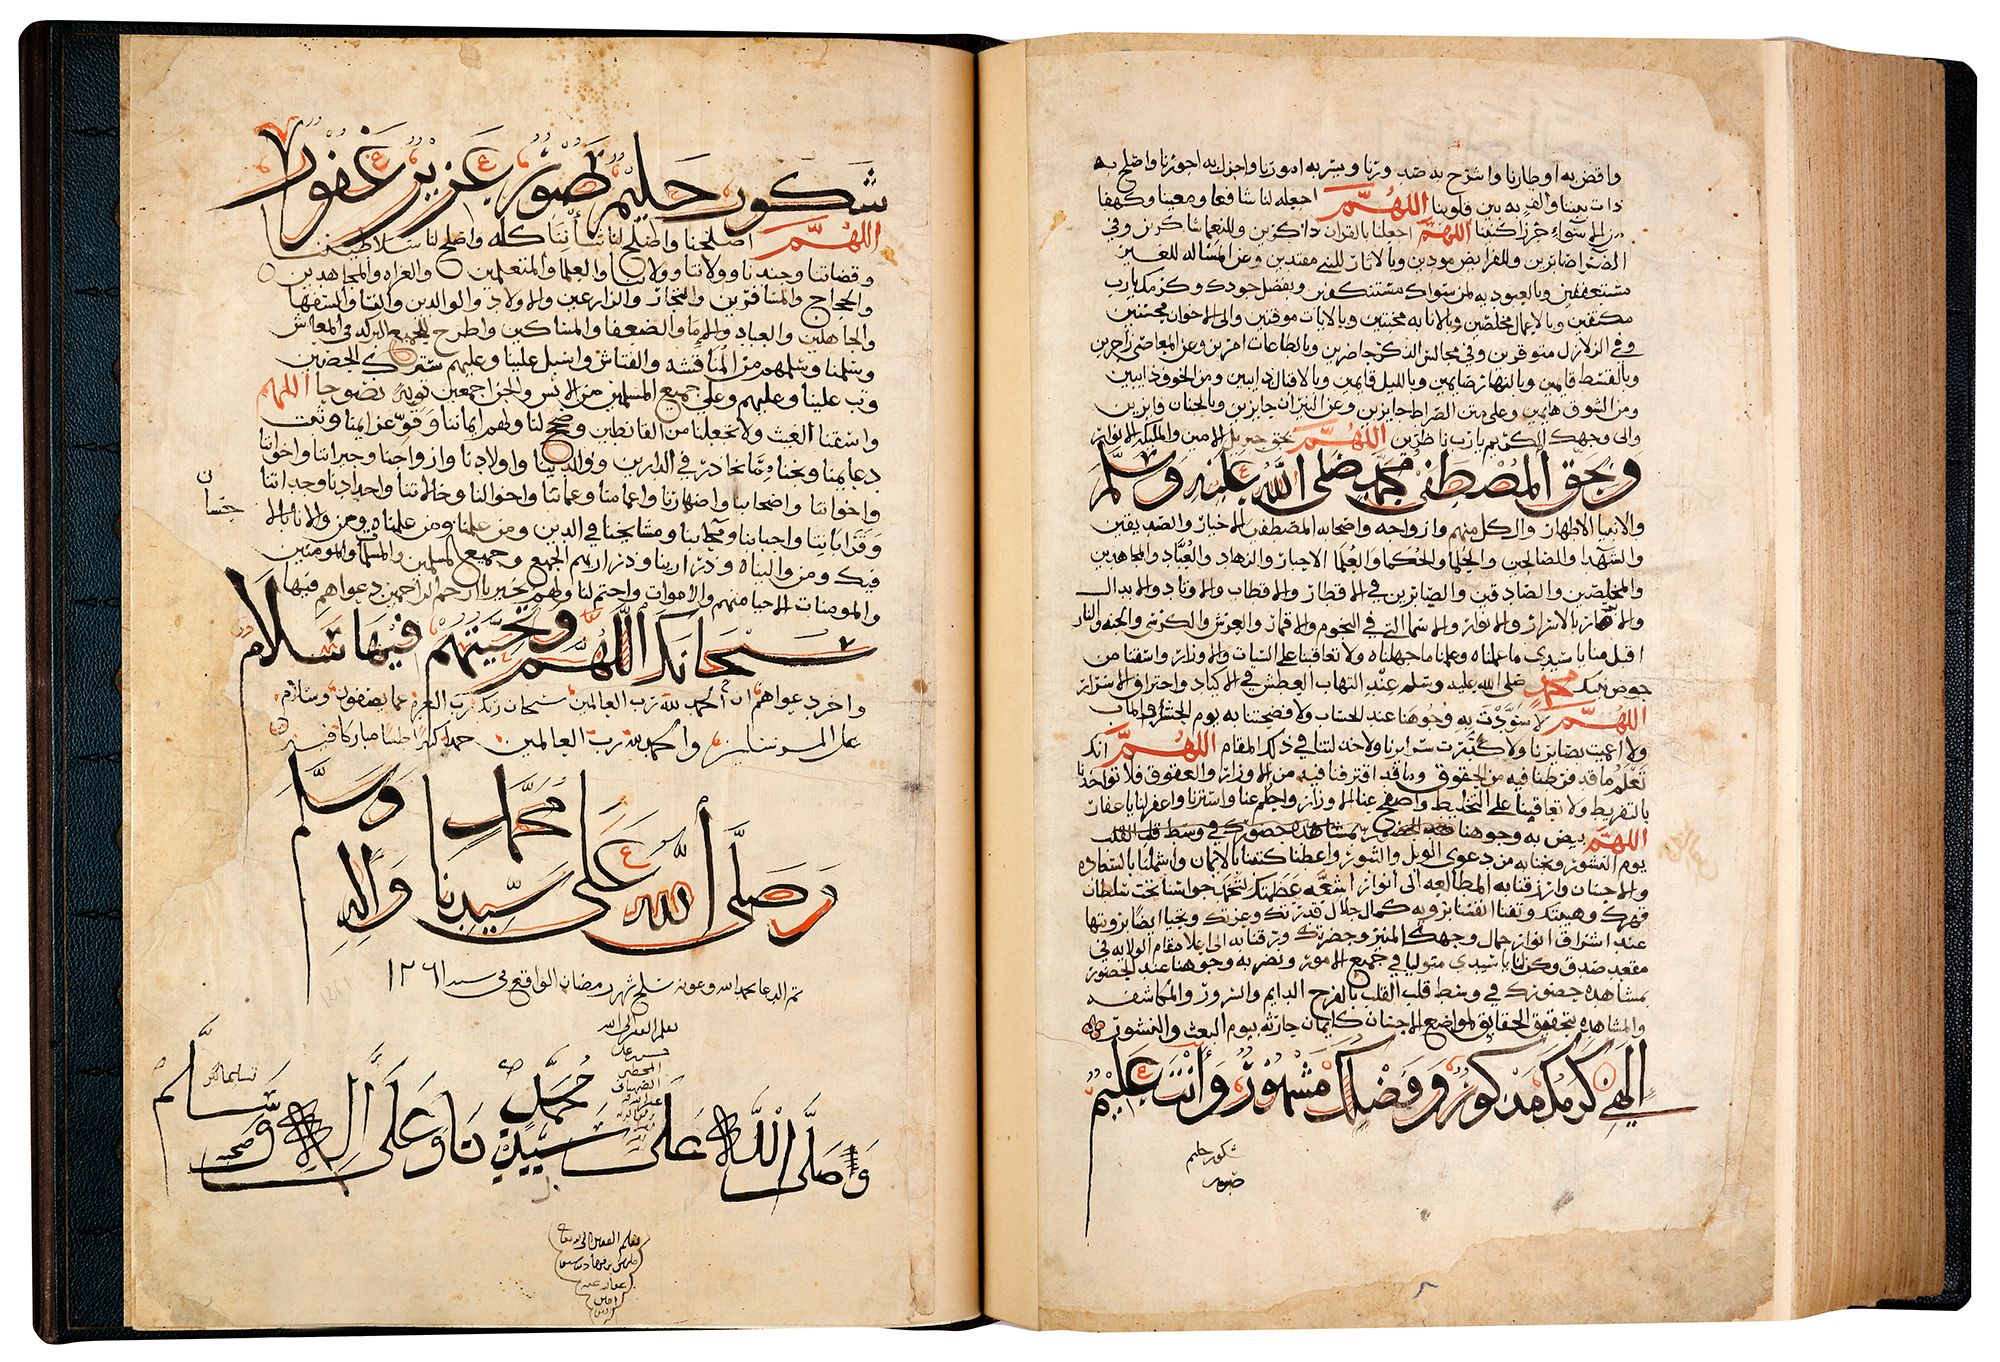 واقض به اوطارنا واشرح به صدورنا ويسر به امورنا واجزل به اجورنا واصلح به
ذات بيننا والف به بين قلوبنا اللهم اجعله لنا شافعا ومعينا وكهفا
اللهم اجعلنا بالقران ذاكرين وللنعما شاكرين وفي
الضرا صابرين وللفرايض مودين وبالاثار للنبي مقتدين وعن المساله للغير
مستعففين وبالعبوديه لمن سواك مستنكفين وبفضل جودك وكرمك يارب
مكتفين وبالاعمال مخلصين وبالانابه مخبتين وبالايات موقنين والى الاخوان محسنين
وفي الزلازل متوقرين وفي مجالس الذكر حاضرين وبالطاعات امرين وعن المعاصي زاجرين
وبالقسط قايمين وبالنهار صايمين وبالليل قايمين
ومن الشوق هايمين وعلى متن الصراط جايزين وعن النيران حايزين وبالجنان فايزين
والى وجهك الكريم يارب ناظرين اللهم بحق جبريل الامين
وبحق المصطفى محمد صلى الله عليه وسلم
والانبيا الاطهار والكل منهم وازواجه واصحابه المصطفين الاخيار والصديقين
والشهدا والصالحين والحلما والحكما والعلما الاحبار والزهاد والعباد والمجاهدين
والمخلصين والصادقين والصابرين في الاقطار والاقطاب والاوتاد والابدال
والانوار والاسما التي في النجوم والاقمار والعرش والكرسي والجنه والنار
اقبل منا يا سيدي ما عملناه وعلمنا ما جهلناه ولا تعاقبنا على السيات والاوزار واسقنا من
حوض نبيك محمد صلى الله عليه وسلم عند التهاب العطش في الاكباد واحتراق الاسرار
اللهم لا سودت به وجوهنا عند الحساب ولا فضحتنا به يوم الحشر والماب
ولا اعميت بصايرنا ولا كدرت سرايرنا ولا خذلتنا في ذلك المقام اللهم انك
تعلم ما قد فرطنا فيه من الحقوق وما قد اقترفنا فيه من الاوزار والعقوق فلا تواخذنا
بالتفريط ولا تعاقبنا على التخليط واصفح عنا الاوزار واحلم عنا واسترنا واغفر لنا يا غفار
اللهم بيض به وجوهنا بمشاهده حضورك في وسط قلب القلب
يوم النشور ونجنا به من دعوى الويل والثبور واعطنا كتبنا بالايمان واشملنا بالسعاده
وارزقنا به المطالعه الى انوار اشعه عظمتك لتخمد حواسنا تحت سلطان
قهرك وهيبتك وتفنا انفسنا بروية كمال جلال قدرتك وعزتك ويحيا ابصارنا
عند اشراق انوار جمال وجهك المنير وحضرتك ورقنا به الى اعلا مقام الولايه في
مقعد صدق وكن لنا يا سيدي متوليا في جميع الامور ونضر به وجوهنا عند الحضور
بمشاهده حضورك في وسط قلب القلب بالفرح الدايم والسرور والمكاشفه
والمشاهده بتحقيق الحقايق لمواضع الاجنان كايمان حارثه بيوم البعث والنشور
الهي كرمك مذكور وفضلك مشهور وأنت عليم
شكور حليم
صبور
شكور حليم صبور عزيز غفور
اللهم اصلحنا واصلح لنا شأننا كله واصلح لنا سلاطيننا
وقضاتنا وجندنا وولاتنا والعلما والمتعلمين والغزاه والمجاهدين
والحجاج والمسافرين والتجار والزارعين والاولاد والوالدين والفتاق والسفها
والجاهلين والعباد والاما والضعفا والمساكين واطرح للجميع البركه في المعاش
وسلمنا وسلمهم من المناقشه والفتاش واسبل علينا وعليهم سترك الحصين
وتب علينا وعليهم وعلى جميع المسلمين من الانس والجن اجمعين توبة نصوحا اللهم
واسقنا الغيث ولا تجعلنا من القانطين وصحح لنا ولهم ايماننا وقو عزايمنا وثبت
دعايمنا ونجنا مما نحاذر في الدارين ووالدينا واولادنا وازواجنا وجيراننا واخواننا
واخواتنا واصحابنا واصهارنا واعمامنا وعماتنا واخوالنا وخالاتنا واجدادنا وجداتنا
حسان
وقراباتنا واحبابنا ومحابنا ومشايخنا في الدين ومن علمنا ومن علمناه ومن والانا بالا
فيك ومن واليناه وذرارينا وذراريهم الجميع وجميع المسلمين والمسلمات والمومنين
والمومنات الاحيا منهم والاموات واختم لنا ولهم بخير يا ارحم الراحمين دعواهم فيها
سبحانك اللهم وتحيتهم فيها سلام
واخر دعواهم ان الحمد لله رب العالمين سبحان ربك رب العزه عما يصفون وسلام
على المرسلين والحمد لله رب العالمين حمدا كثيرا طيبا مباركا فيه
وصلى الله على سيدنا محمد واله وسلم
تم الدعا بحمد الله وعونه سلخ شهر رمضان الواقع في سنه ١٢٦١
بقلم الفقير الى الله
وصلى الله على سيدنا محمد وعلى اله وصحبه وسلم
تسليما كثيرا
بقلم الفقير الى الله